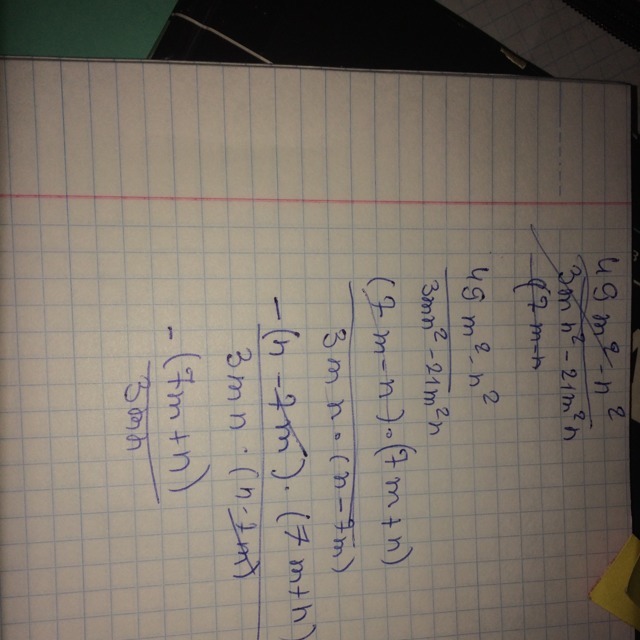 49m² - n²
3mn² - 21m²n
(7m-n
49m² - n²
3mn² - 21m²n
(7m-n)·(7m+n)
3mn·(n-7m)
-(n-7m)·(7m+n)
3mn·(n-7m)
-(7m+n)
3mn